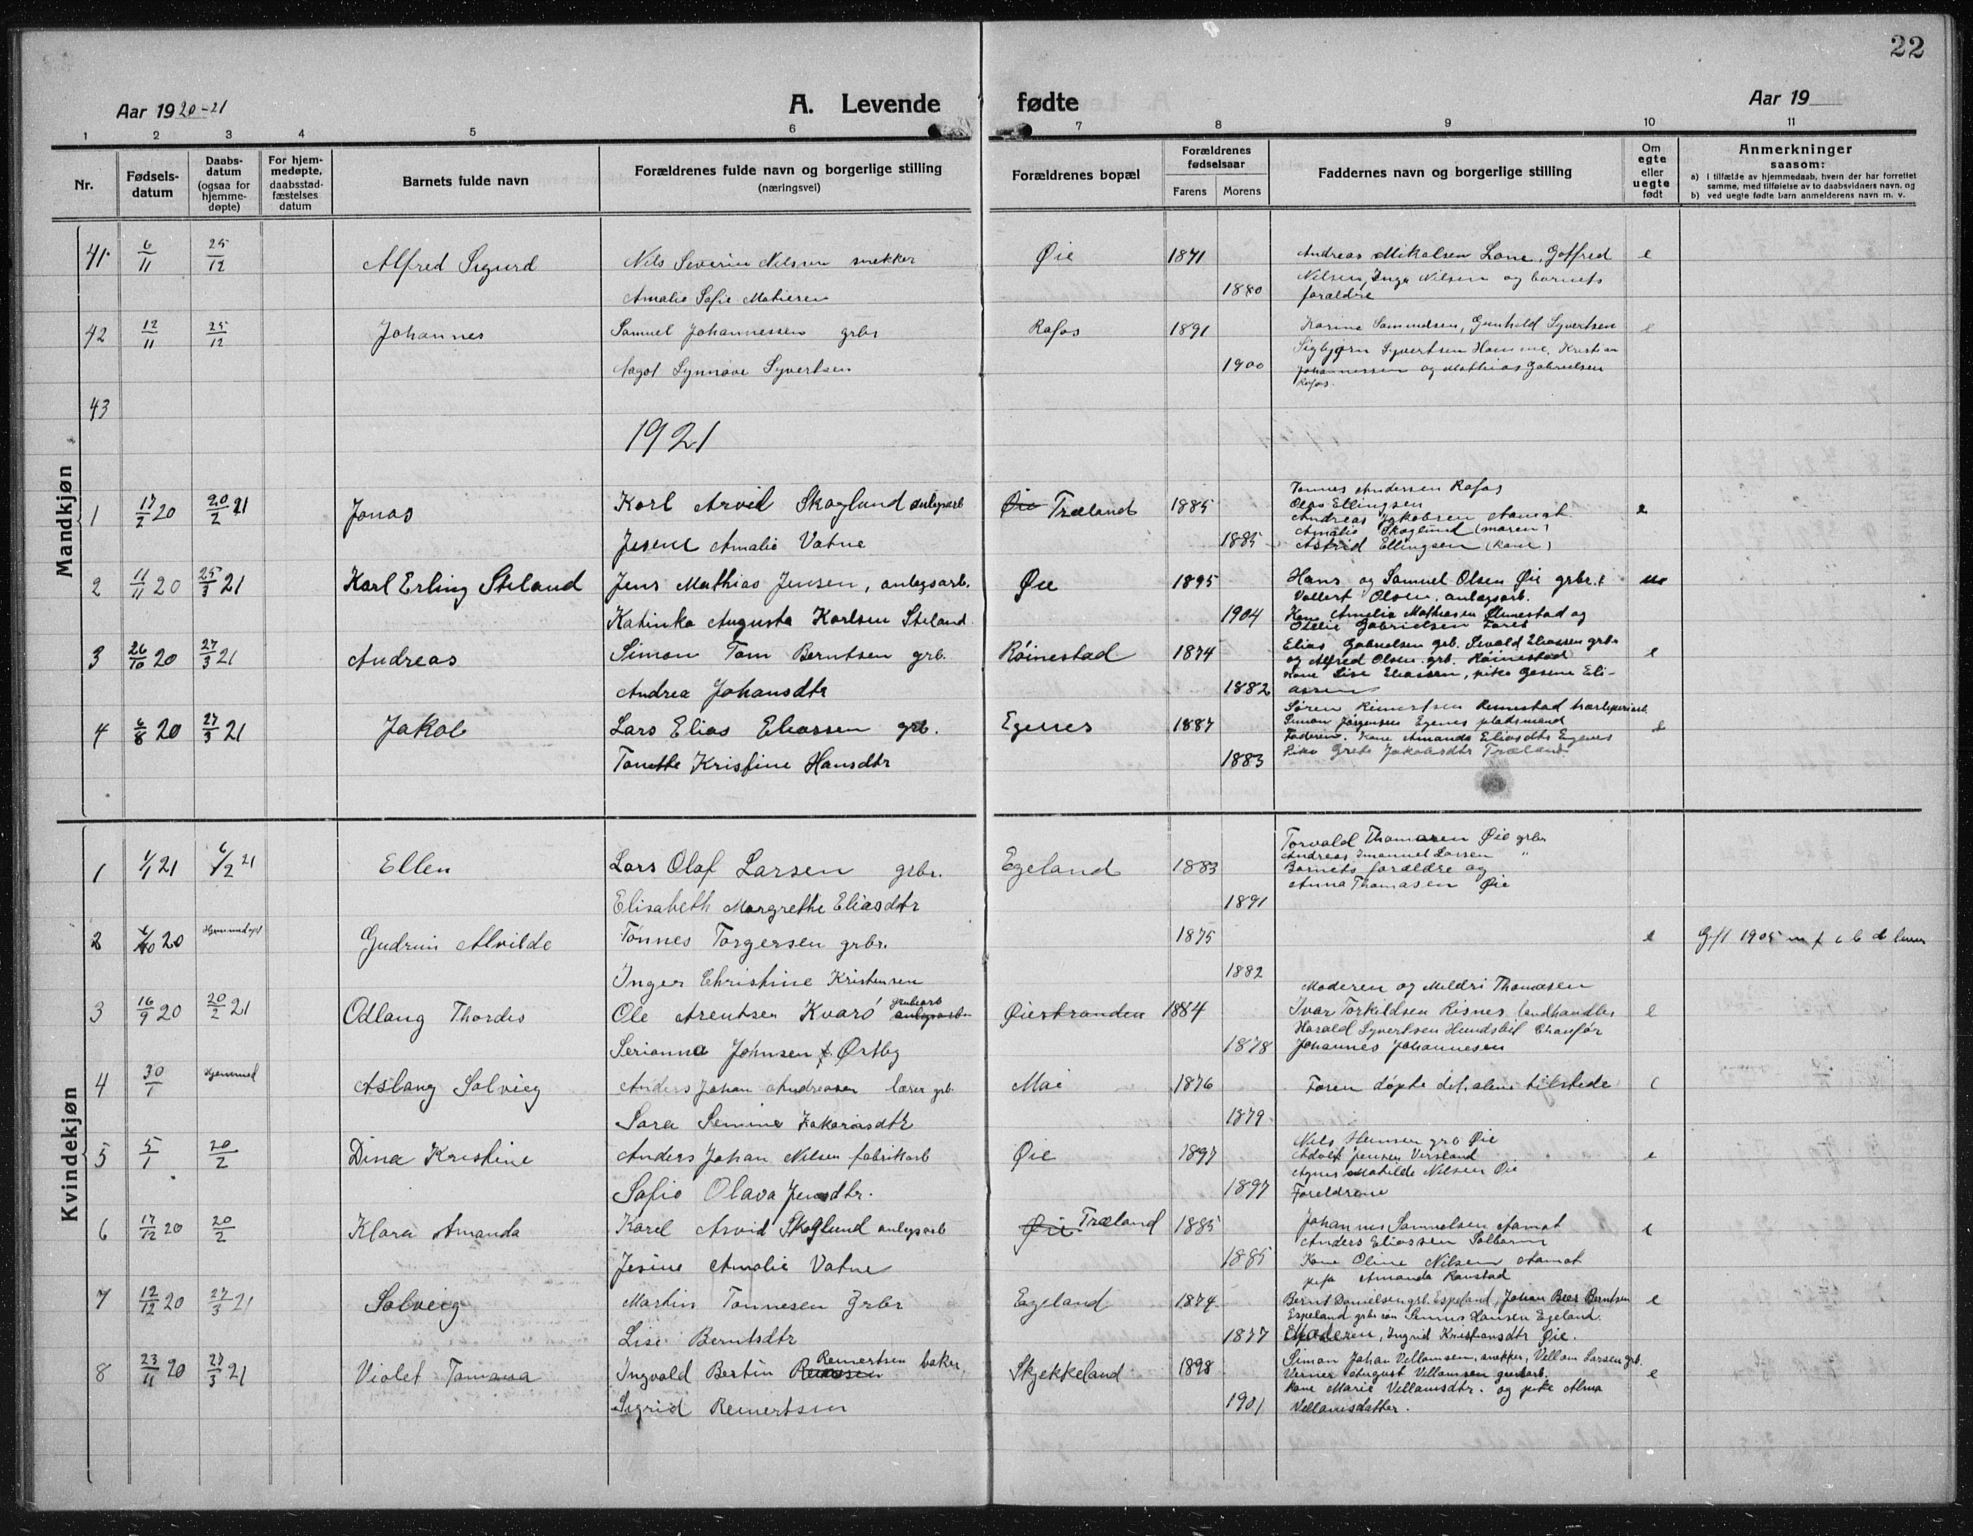 22
Aar 1920-21
A. Levende fødte
Aar 19
1 2 3 4 5 6 7 8 9 10 11
Nr.
Fødsels-datum
Daabs-datum (ogsaa for hjemme-døpte)
For hjem-medøpte, daabsstad-fæstelses datum
Barnets fulde navn
Forældrenes fulde navn og borgerlige stilling (næringsvei)
Forældrenes bopæl
Forældrenes fødselsaar
Farens Morens
Faddernes navn og borgerlige stilling
Om egte eller uegte født
Anmerkninger
saasom:
a) I tilfælde av hjemmedaab, hvem der har forrettet samme, med tilføielse av to daabsvidners navn, og
b) ved uegte fødte barn anmelderens navn m. v.
Mandkjøn
41 6/11 25/12 Alfred Sigurd Nils Severin Nilsen snekker Øie 1871 Andreas Mikalsen Lone, Gotfred e
Amalie Sofie Matiesen 1880 Nilsen, Inga Nilsen og barnets
forældre
42 12/11 25/12 Johannes Samuel Johannessen grbr Rafos 1891 Karine Samuelsen, Gunhild Syvertsen e
Aagot Synnøve Syvertsen 1900 Sigbjørn Syvertsen Homme, Kristian
Johannessen og Mathias Gabrielsen
Rafos.
43
1921
1 17/2 20 20/2 21 Jonas Karl Arvid Skoglund anlegsarb Øie Træland 1885 Tønnes Andersen Rafos e
Olas Ellingsen
Andreas Jakobsen Aamot
Jesine Amalie Vatne 1885 Amalie Skoglund (moren)
Astrid Ellingsen (kone)
2 11/11 20 25/3 21 Karl Erling Steland Jens Mathias Jensen, anlegsarb. Øie 1895 Hans og Samuel Olsen Øie grbr. ue
Vallert Olsen, anlegsarb.
Katinka Augusta Karlsen Steland 1904 Kone Amelia Mathiesen Unnestad og
Otelie Gabrielsen
3 26/10 20 27/3 21 Andreas Simon Tom Berntsen grb. Røinestad 1874 Elias Gabrielsen grb. Sevald Eliassen grbr e
og Alfred Olsen grb. Røinestad
Andrea Johansdtr 1882 Kone Lise Eliassen, pike Gesine Eli-
assen
4 6/8 20 27/3 21 Jakob Lars Elias Eliassen grb. Egenes 1887 Søren Reinertsen Rennestad e
Simon Jørgensen Egenes pladsmand
Faderen. Kone Amanda Eliasdtr Egenes
Tonette Kristine Hansdtr 1883 Pike Grete Jakobsdtr Træland
Kvindekjøn
1 1/1 21 6/2 21 Ellen Lars Olaf Larsen grbr. Egeland 1883 Torvald Thomasen Øie grbr
Andreas Imanuel Larsen "
Barnets forældre og
Anna Thomasen Øie
Elisabeth Margrethe Eliasdtr 1891
2 20 Hjemmedøpt Gudrun Alvilde Tønnes Torgersen grbr. 1875 e Gft 1905
Inger Christine Kristensen 1882
3 16/9 20 20/2 21 Odlaug Thordis Ole Arentsen Kvarø grubearb anlegsarb Øiestranden 1884 Moderen og Meldri Thomasen
Ivar Torkildsen Risnes landhandler e
Harald Syvertsen Hundsbit Chaufør
Serianna Johnsen f Østby 1878 Johannes Johannesen
4 30/1 Hjemmed Aslaug Solveig Anders Johan Andreasen lærer grb Moi 1876 Faren døpte det, alene tilstede e
Sara Semine Zakariasdtr 1879
5 5/1 20/2 Dina Kristine Anders Johan Nilsen fabrikarb Øie 1897 Nils Hansen grb Øie e
Adolf Jensen Virsland
Agnes Matilde Nilsen Øie
Sofie Olava Jensdtr. 1897 Foreldrene
6 17/12 20 20/2 Klara Amanda Karl Arvid Skoglund anlegsarb Øie Træland 1885 Johannes Samuelsen Aamot e
Anders Eliassen Solbarm
Jesine Amalie Vatne 1885 Kone Oline Nilsen Aamot
Amanda Ronstad
7 12/12 20 27/3 21 Solveig Martin Tønnesen grbr Egeland 1874 Bernt Danielsen grb. Espeland, Johan Beer Berntsen e
Espeland Hansen Egeland.
Lise Berntsdtr 1877 Moderen, Ingrid Kristiansdtr Øie.
8 23/11 20 27/3 21 Violet Tamara Ingvald Bertin Reinertsen baker Skjekkeland 1898 Simon Johan Vellamsen, snekker, Vellom Larsen grb. e
Verner August Vellamsen
kone Marie Vellamsdtr. og pike Alma
Sigrid Reinertsen 1901 Vellamsdatter.